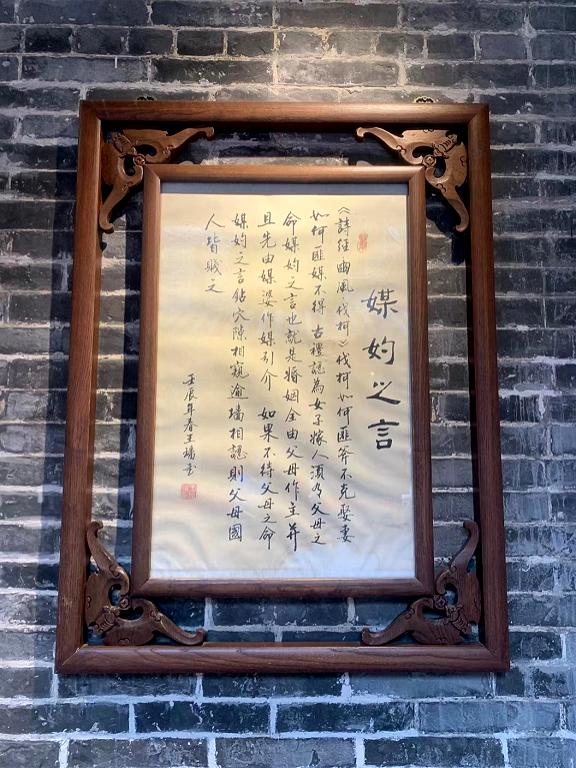 媒妁之言
《詩经幽風·伐柯》伐柯如何匪斧不克娶妻
如何匪媒不得 古禮認為女子嫁人須為父母之
命媒妁之言也就是婚姻全由父母作主并
且先由媒婆作媒引介 如果不待父母之命
媒妁之言钻穴隙相窺逾墻相認則父母國
人皆贱之
壬辰年春王墙书